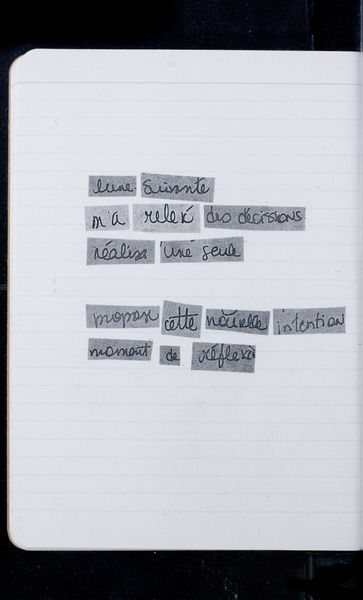 lune suivante
m'a relex des décissions
réalisa une seule
propose cette nouvelle intention
moment de réflexi